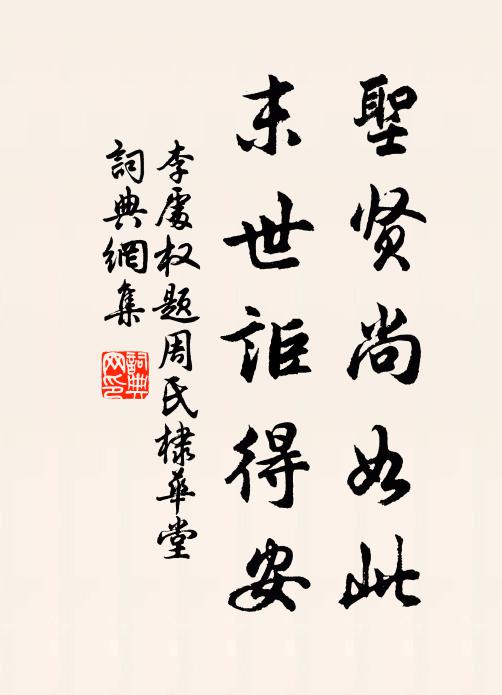 聖贤尚如此
末世詎得安
李處权题周氏棣華堂
詞典網集
詞典网印